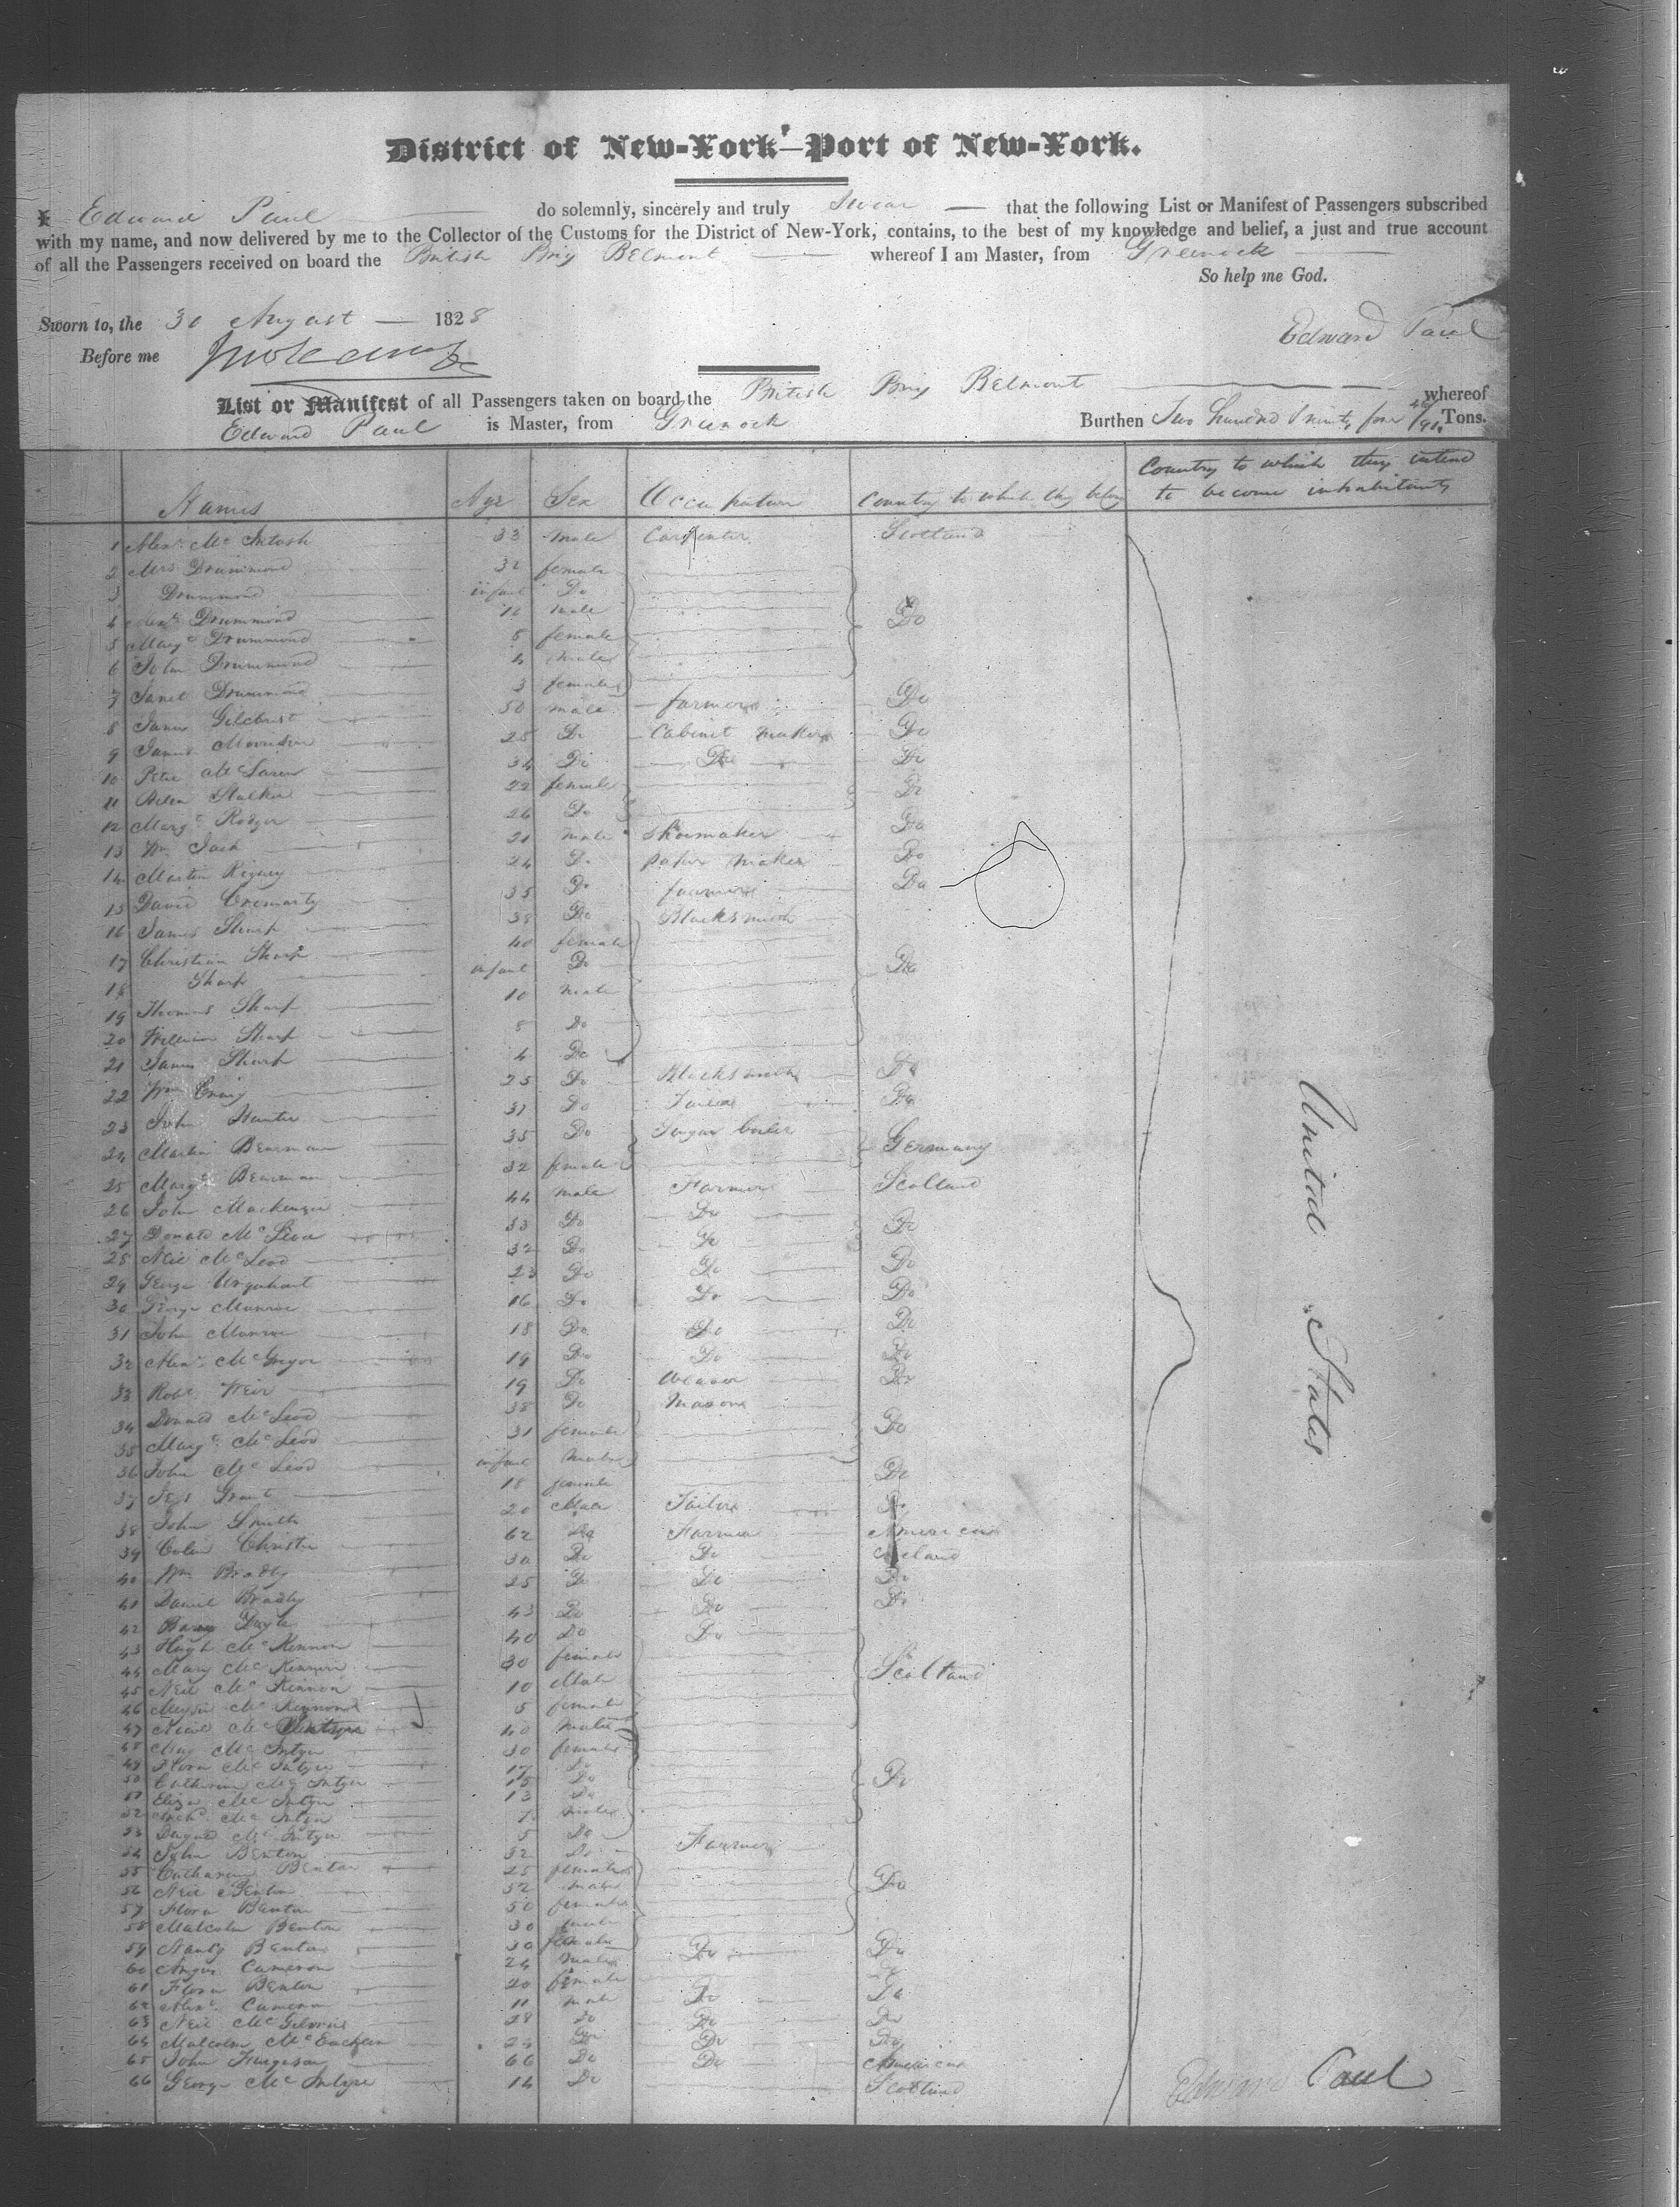 District of New-York—Port of New-York.
I Edward Paul do solemnly, sincerely and truly Swear that the following List or Manifest of Passengers subscribed
with my name, and now delivered by me to the Collector of the Customs for the District of New-York, contains, to the best of my knowledge and belief, a just and true account
of all the Passengers received on board the British Brig Belmont whereof I am Master, from Greenock
So help me God.
Sworn to, the 30 August 1828
Edward Paul
Before me
List or Manifest of all Passengers taken on board the British Brig Belmont whereof
Edward Paul is Master, from Greenock Burthen Two hundred Ninety four Tons.
Names Age Sex Occupation Country to which they belong Country to which they intend to become inhabitants
1 Alexr McIntosh 33 male Carpenter Scotland
2 Mrs Drummond 32 female
3 Drummond infant Do
4 Alexr Drummond male Do
5 Margt Drummond female
6 John Drummond 4 male
7 Janet Drummond 3 female
8 James Gilchrist 50 male farmer Do
9 James Morrison 25 Do Cabinet maker Do
10 Peter McLaren 34 Do Do Do
11 Helen Stalker 22 female Do
12 Margt Rodger 26 Do
13 Wm Jack 21 male shoemaker Do
14 Martin Rigney 24 Do paper maker Do
15 David Cromarty 35 Do farmer Do
16 James Sharp 38 Do Blacksmith
17 Christian Sharp 40 female
18 Sharp infant Do Do
19 Thomas Sharp 10 male
20 William Sharp 8 Do
21 James Sharp 4 Do
22 Wm Craig 25 Do Blacksmith Do
23 John Hunter 31 Do Tailor Do
24 Martin Bearman 35 Do Sugar boiler Germany
25 Margt Bearman 32 female
26 John Mackenzie 44 male Farmer Scotland
27 Donald McLeod 33 Do Do Do
28 Neil McLeod 32 Do Do
29 George Urquhart 23 Do Do Do
30 George Munroe 16 Do Do Do
31 John Munroe 18 Do Do Do
32 Alexr McGregor 19 Do Do Do
33 Robt Weir 19 Do Weaver Do
34 Donald McLeod 38 Do mason
35 Margt McLeod 31 female Do
36 John McLeod infant male
37 Grant 18 female Do
38 John Smith 20 Male Tailor Do
39 Colin Christie 62 Do Farmer American
40 Wm Bradly 30 Do Do
41 Daniel Bradly 25 Do Do Do
42 43 Do Do Do
43 Hugh McKennon 40 Do Do
44 Mary McKennon 30 female Scotland
45 Neil McKennon 10 Male
46 McKennon 5 female
47 McIntyre 40 male
48 McIntyre 30 female
49 Flora McIntyre 17 Do
50 Catherine McIntyre 15 Do Do
51 Eliza McIntyre 13 Do
52 Archd McIntyre 7 male
53 Dugald McIntyre 5 Do
54 John Benton 52 Do Farmer
55 Catharine Benton 25 female
56 Neil Benton 52 male Do
57 Flora Benton 50 female
58 Malcolm Benton 30
59 Nancy Benton 30 female Do Do
60 Angus Cameron 24 male Do
61 Flora Benton 20 female
62 Alexr Cameron 11 male Do Do
63 Neil 28 Do Do Do
64 Malcolm McEachern 23 Do Do Do
65 John Ferguson 66 Do Do American
66 George McIntyre 14 Do Scotland
United States
Edward Paul